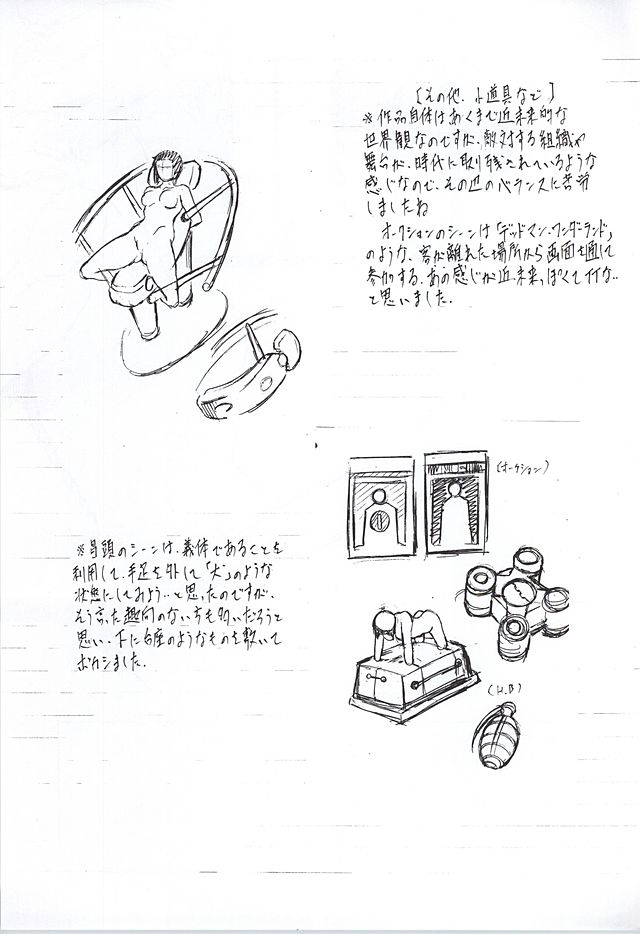 [その他、小道具など]
※作品自体はあくまで近未来的な
世界観なのですが、敵対する組織や
舞台が、時代に取り残されているような
感じなので、その辺のバランスに苦労
しましたね
オークションのシーンは「デッドマン・ワンダーランド」
のような、客が離れた場所から画面を通して
参加する、あの感じが近未来っぽくて
と思いました。
(オークション)
※冒頭のシーンは、義体であることを
利用して、手足を外して「犬」のような
状態にしてみよう…と思ったのですが、
そう言った趣向のない方も多いだろうと
思い、下に台座のようなものを敷いて
ボカシました。
(H.B)